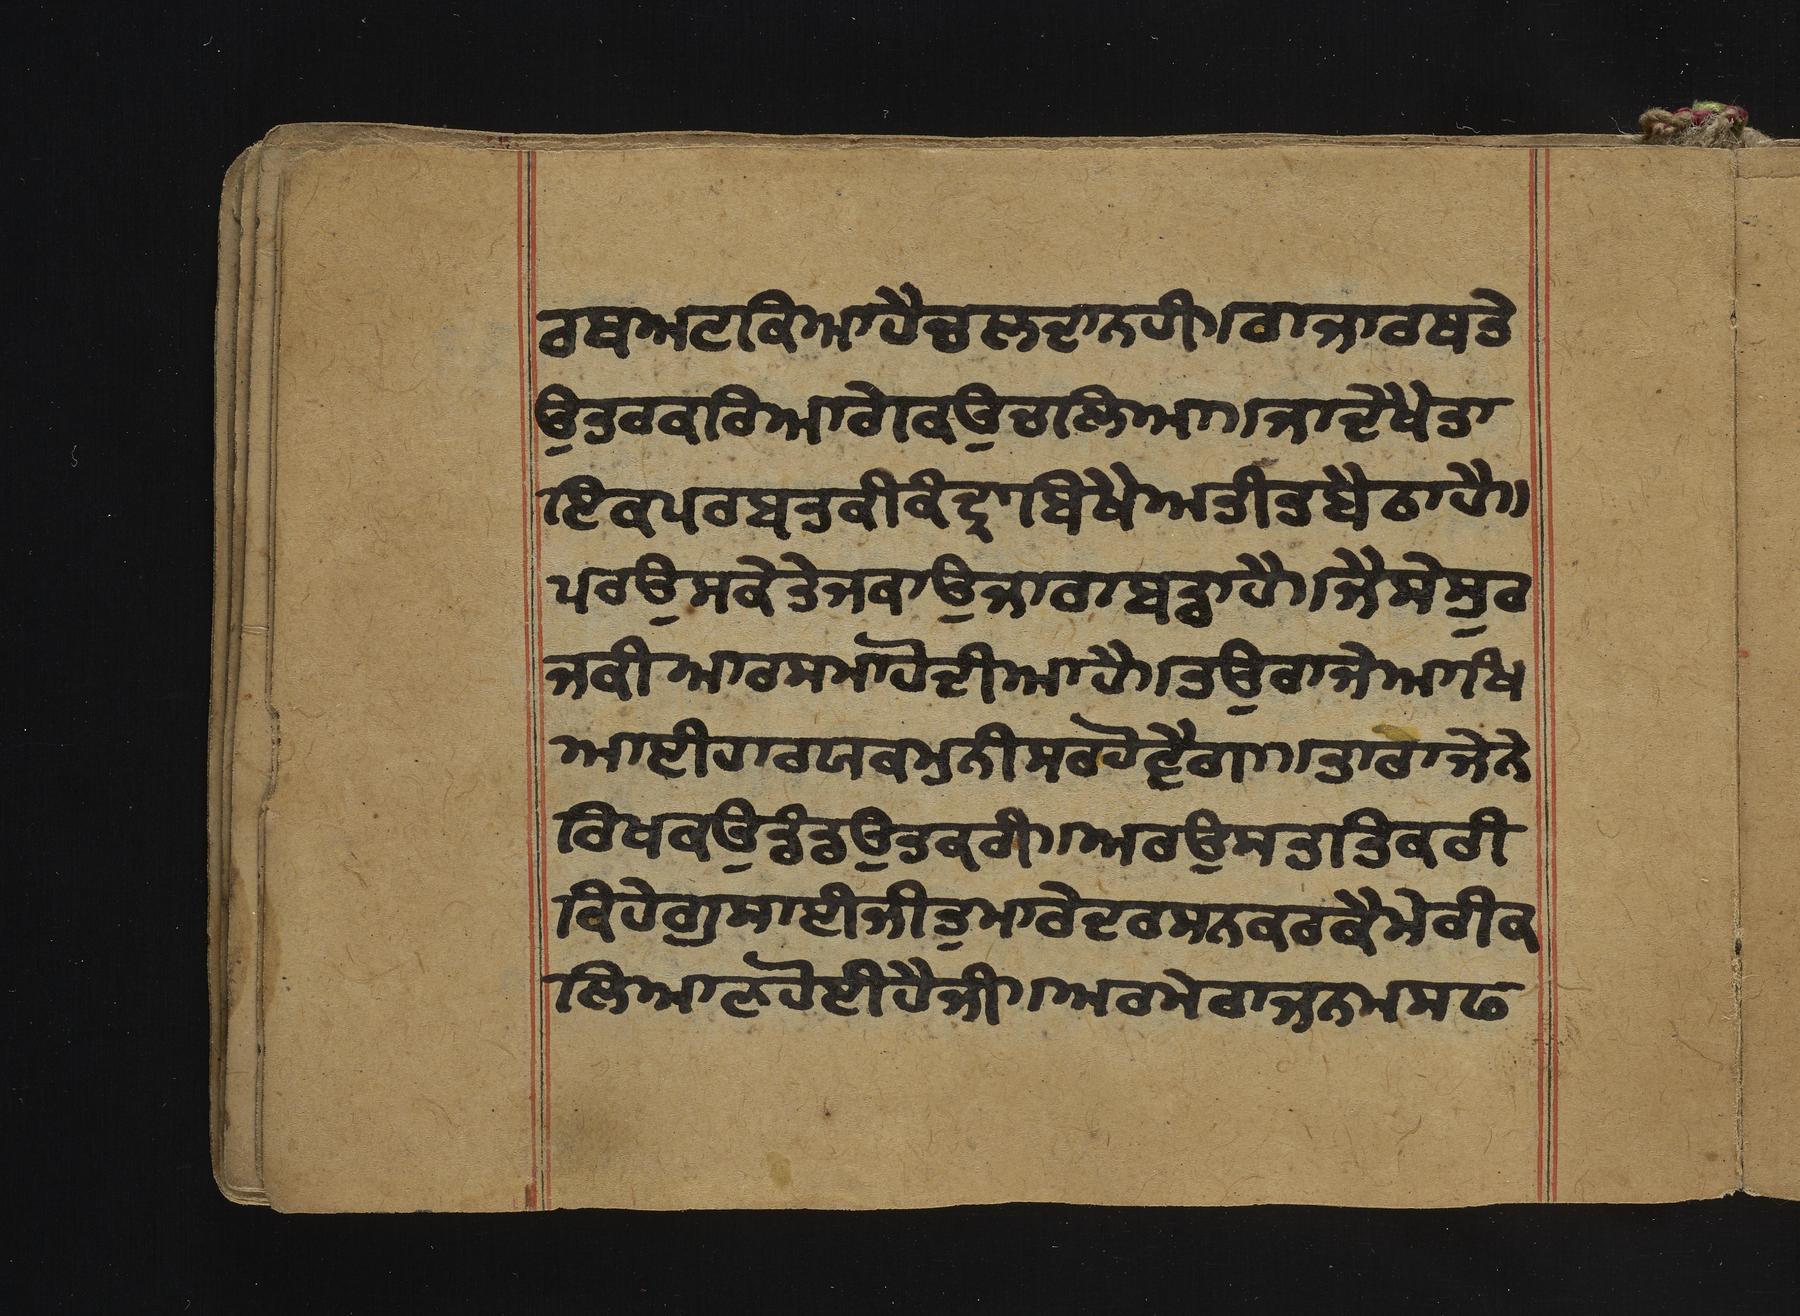 ਰਥਅਟਕਿਆਹੈਚਲਦਾਨਹੀ॥ਰਾਜਾਰਥਤੇ
ਉਤਰਕਰਿਆਗੇਕਉਚਲਿਆ॥ਜਾਦੇਖੈਤਾ
ਇਕਪਰਬਤਕੀਕੰਦ੍ਰਾਬਿਖੈਅਤੀਤਬੈਠਾਹੈ॥
ਪਰਉਸਕੇਤੇਜਕਾਉਜਾਰਾਬਡਾਹੈ॥ਜੈਸੇਸੁਰ
ਜਕੀਆਰਸਮਾਹੋਦੀਆਹੈ॥ਤਉਰਾਜੇਆਖਿ
ਆਈਹਾਰਖਕਮੁਨੀਸਰਹੋਵੈਗਾ॥ਤਾਰਾਜੇਨੇ
ਰਿਖਕਉਡੰਡਉਤਕਰੀ॥ਅਰਉਸਤਤਿਕਰੀ
ਕਿਹੇਗੁਸਾਈਜੀਤੁਮਾਰੇਦਰਸਨਕਰਕੈਮੇਰੀਕ
ਲਿਆਣਹੋਈਹੈਜੀ॥ਅਰਮੇਰਾਜਨਮਸਫ